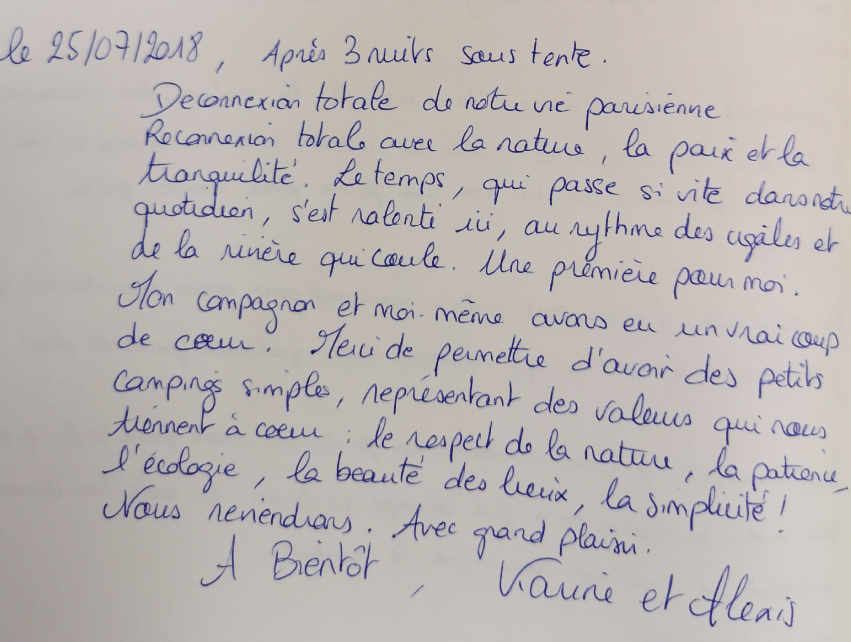 le 25/07/2018, Après 3 nuits sous tente.
Deconnexion totale de notre vie parisienne
Reconnexion totale avec la nature, la paix et la
tranquilité. Le temps, qui passe si vite dans notre
quotidien, s'est ralenti ici, au rythme des cigales et
de la rivière qui coule. Une première pour moi.
Mon compagnon et moi-même avons eu un vrai coup
de cœur. Merci de permettre d'avoir des petits
campings simples, représentant des valeurs qui nous
tiennent à coeur : le respect de la nature, la patience,
l'écologie, la beauté des lieux, la simplicité !
Nous reviendrons. Avec grand plaisir.
A Bientôt, et Alexis